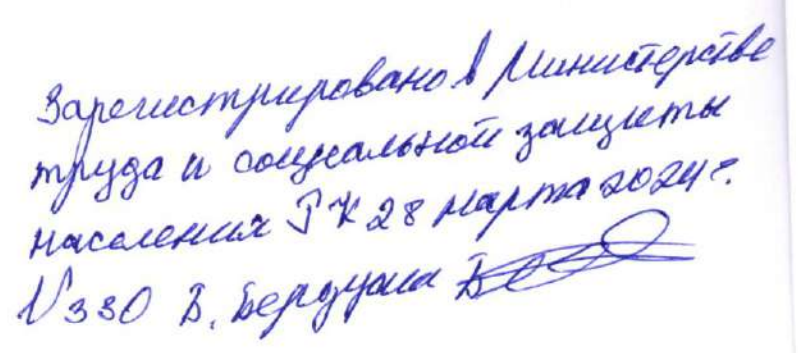 Зарегистрировано в Министерстве
труда и социальной защиты
населения РК 28 марта 2024 г.
№330 Б.